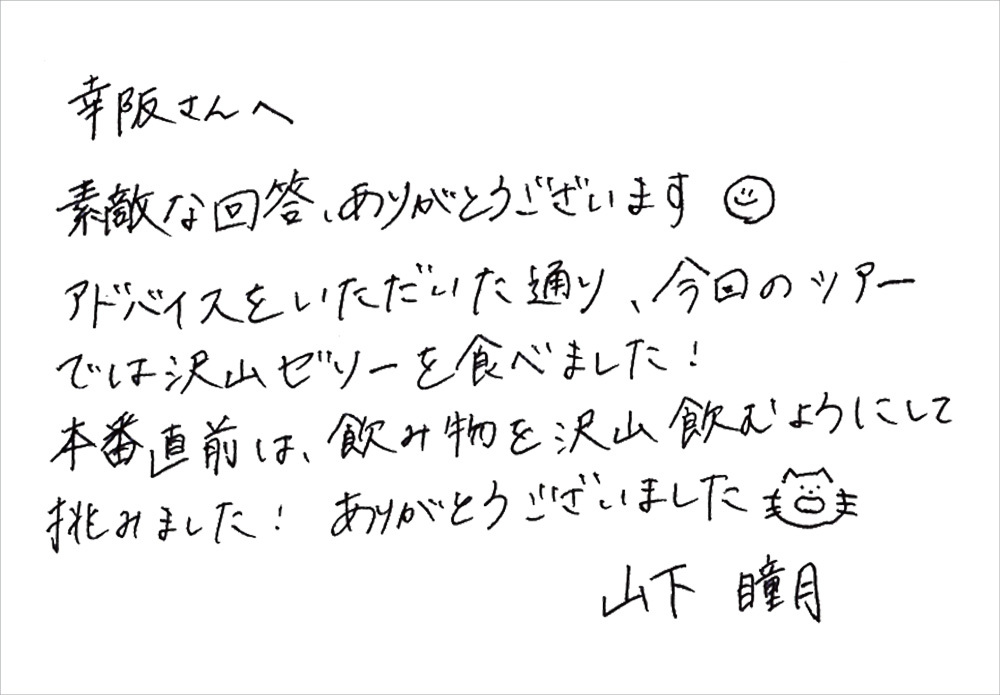 幸阪さんへ
素敵な回答、ありがとうございます
アドバイスをいただいた通り、今回のツアー
では沢山ゼリーを食べました!
本番直前は、飲み物を沢山飲むようにして
挑みました! ありがとうございました
山下 瞳月